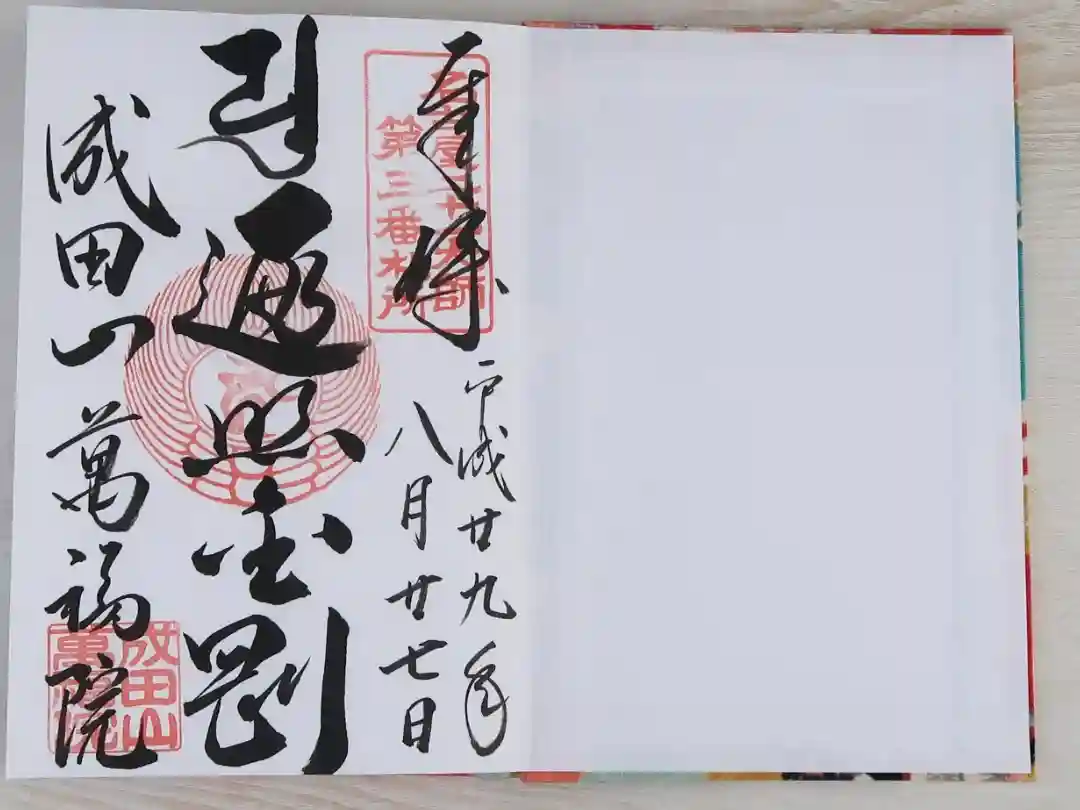 奉拝
第三番札所
平成廿九年
八月廿七日
遍照金剛
成田山萬福院
成田山
萬福院